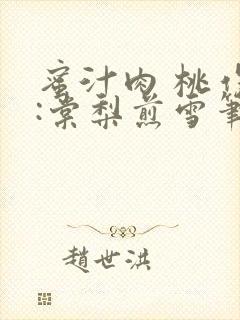 蜜汁肉桃
:棠梨煎雪筆
趙世洪